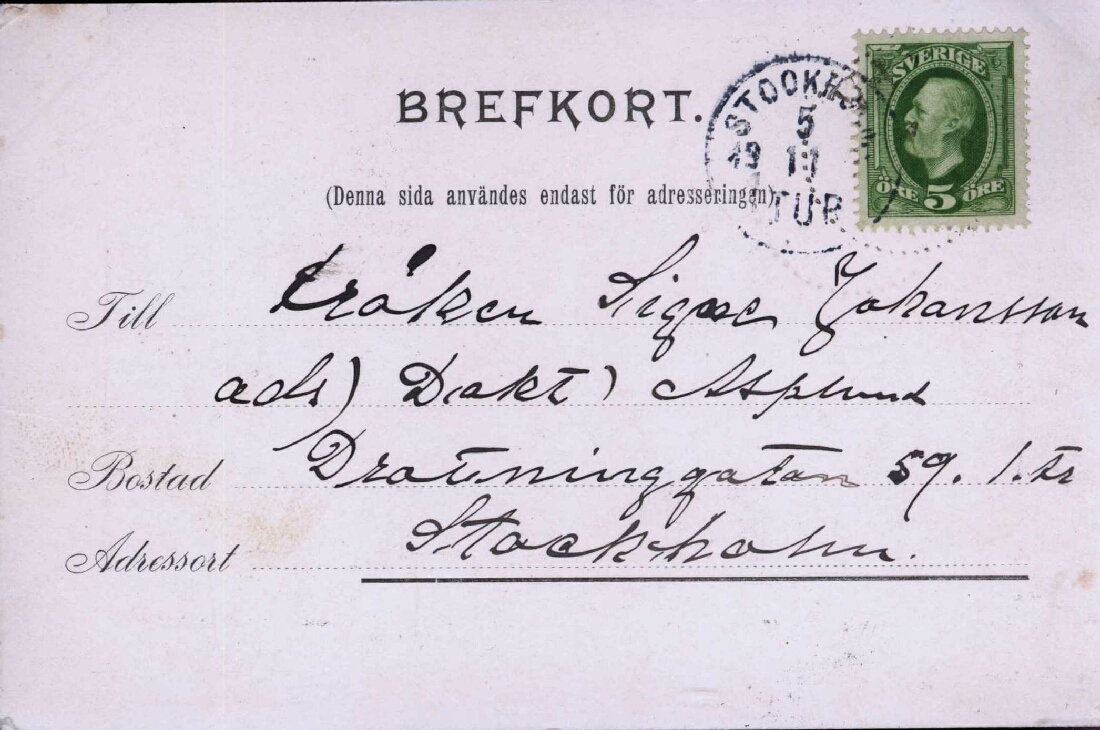 BREFKORT.
SVERIGE
ÖRE 5 ÖRE
5
19 11
TUR
(Denna sida användes endast för adresseringen)
Till Fröken Signe Johansson
ads) Dokt) Asplund
Bostad Drottninggatan 59. 1. tr
Adressort Stockholm.